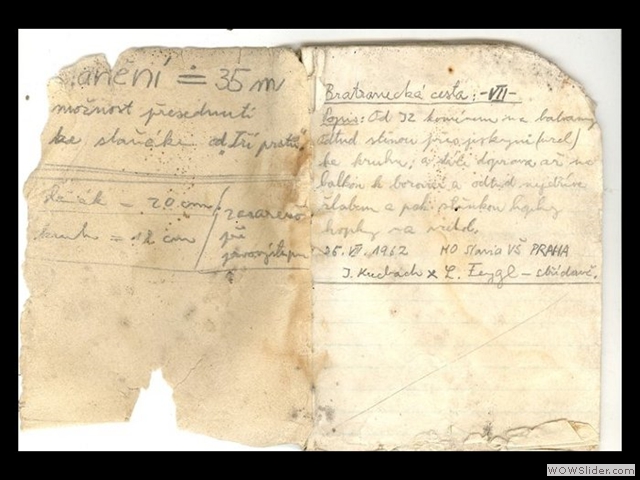 anění = 35 m
možnost přesednutí
ke slaňáku od "Tří prstů"
slaňák = 20 cm
kruh = 12 cm
zasazeno
při
prvovýstupu
Bratranecká cesta: -VII-
Popis: Od JZ komínem na
odtud stěnou přes
ke kruhu, a doprava až na
balkon k borovici a odtud nejdříve
žlabem a pak stěnkou
na vrchol.
26. VI. 1962 HO Slavia VŠ PRAHA
J. Kuchach x L. Feygl - střídavě.
WOWSlider.com